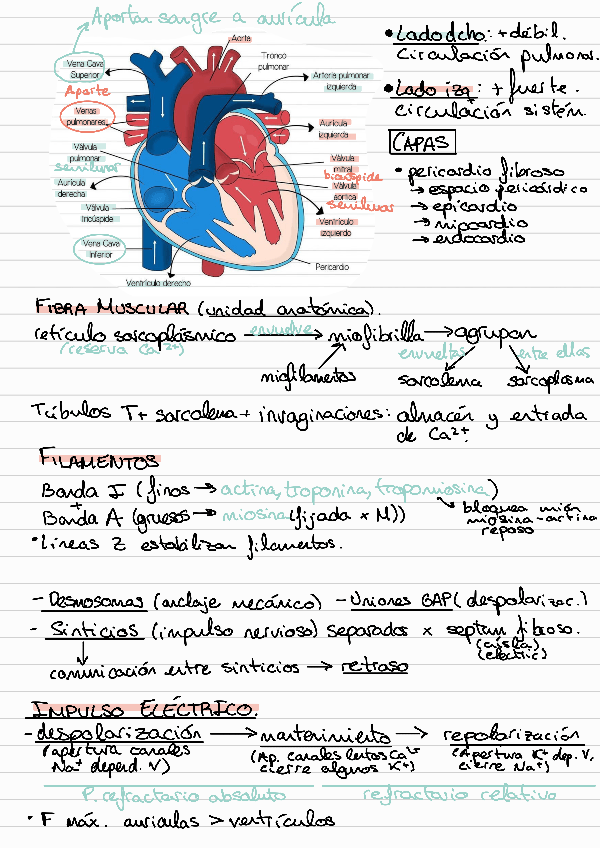 Aportan sangre a aurícula
Aorta
Tronco
pulmonar
Vena Cava
Superior
Arteria pulmonar
izquierda
Aparte
Venas
pulmonares
Aurícula
izquierda
Válvula
pulmonar
semilunar
Válvula
mitral
bicúspide
Aurícula
derecha
Válvula
aórtica
semilunar
Válvula
tricúspide
Ventrículo
izquierdo
Vena Cava
Inferior
Pericardio
Ventrículo derecho
• Lado dcho: + débil.
Circulación pulmonar.
• Lado izq: + fuerte.
circulación sistém.
CAPAS
• pericardio fibroso
→ espacio pericárdico
→ epicardio
→ miocardio
→ endocardio
FIBRA MUSCULAR (unidad anatómica).
retículo sarcoplásmico envuelve → miofibrilla → agrupan
(reserva Ca2+) envueltas entre ellas
miofilamentos sarcolema sarcoplasma
Túbulos T + sarcolema + invaginaciones: almacén y entrada
de Ca2+.
FILAMENTOS
Banda I (finos → actina, troponina, tropomiosina)
+
Banda A (gruesos → miosina (fijada x M))
bloquea unión
miosina-actina
reposo
• Líneas Z estabilizan filamentos.
- Desmosomas (anclaje mecánico) - Uniones GAP (despolarizac.)
- Sinticios (impulso nervioso) separados x septum fibroso.
(aísla)
(electric)
comunicación entre sinticios → retraso
IMPULSO ELÉCTRICO.
- despolarización → mantenimiento → repolarización
(apertura canales
Na+ depend. V)
(Ap. canales lentos Ca2+
cierre algunos K+)
(Apertura K+ dep. V,
cierre Na+)
P. refractario absoluto refractario relativo
• F máx. aurículas > ventrículos